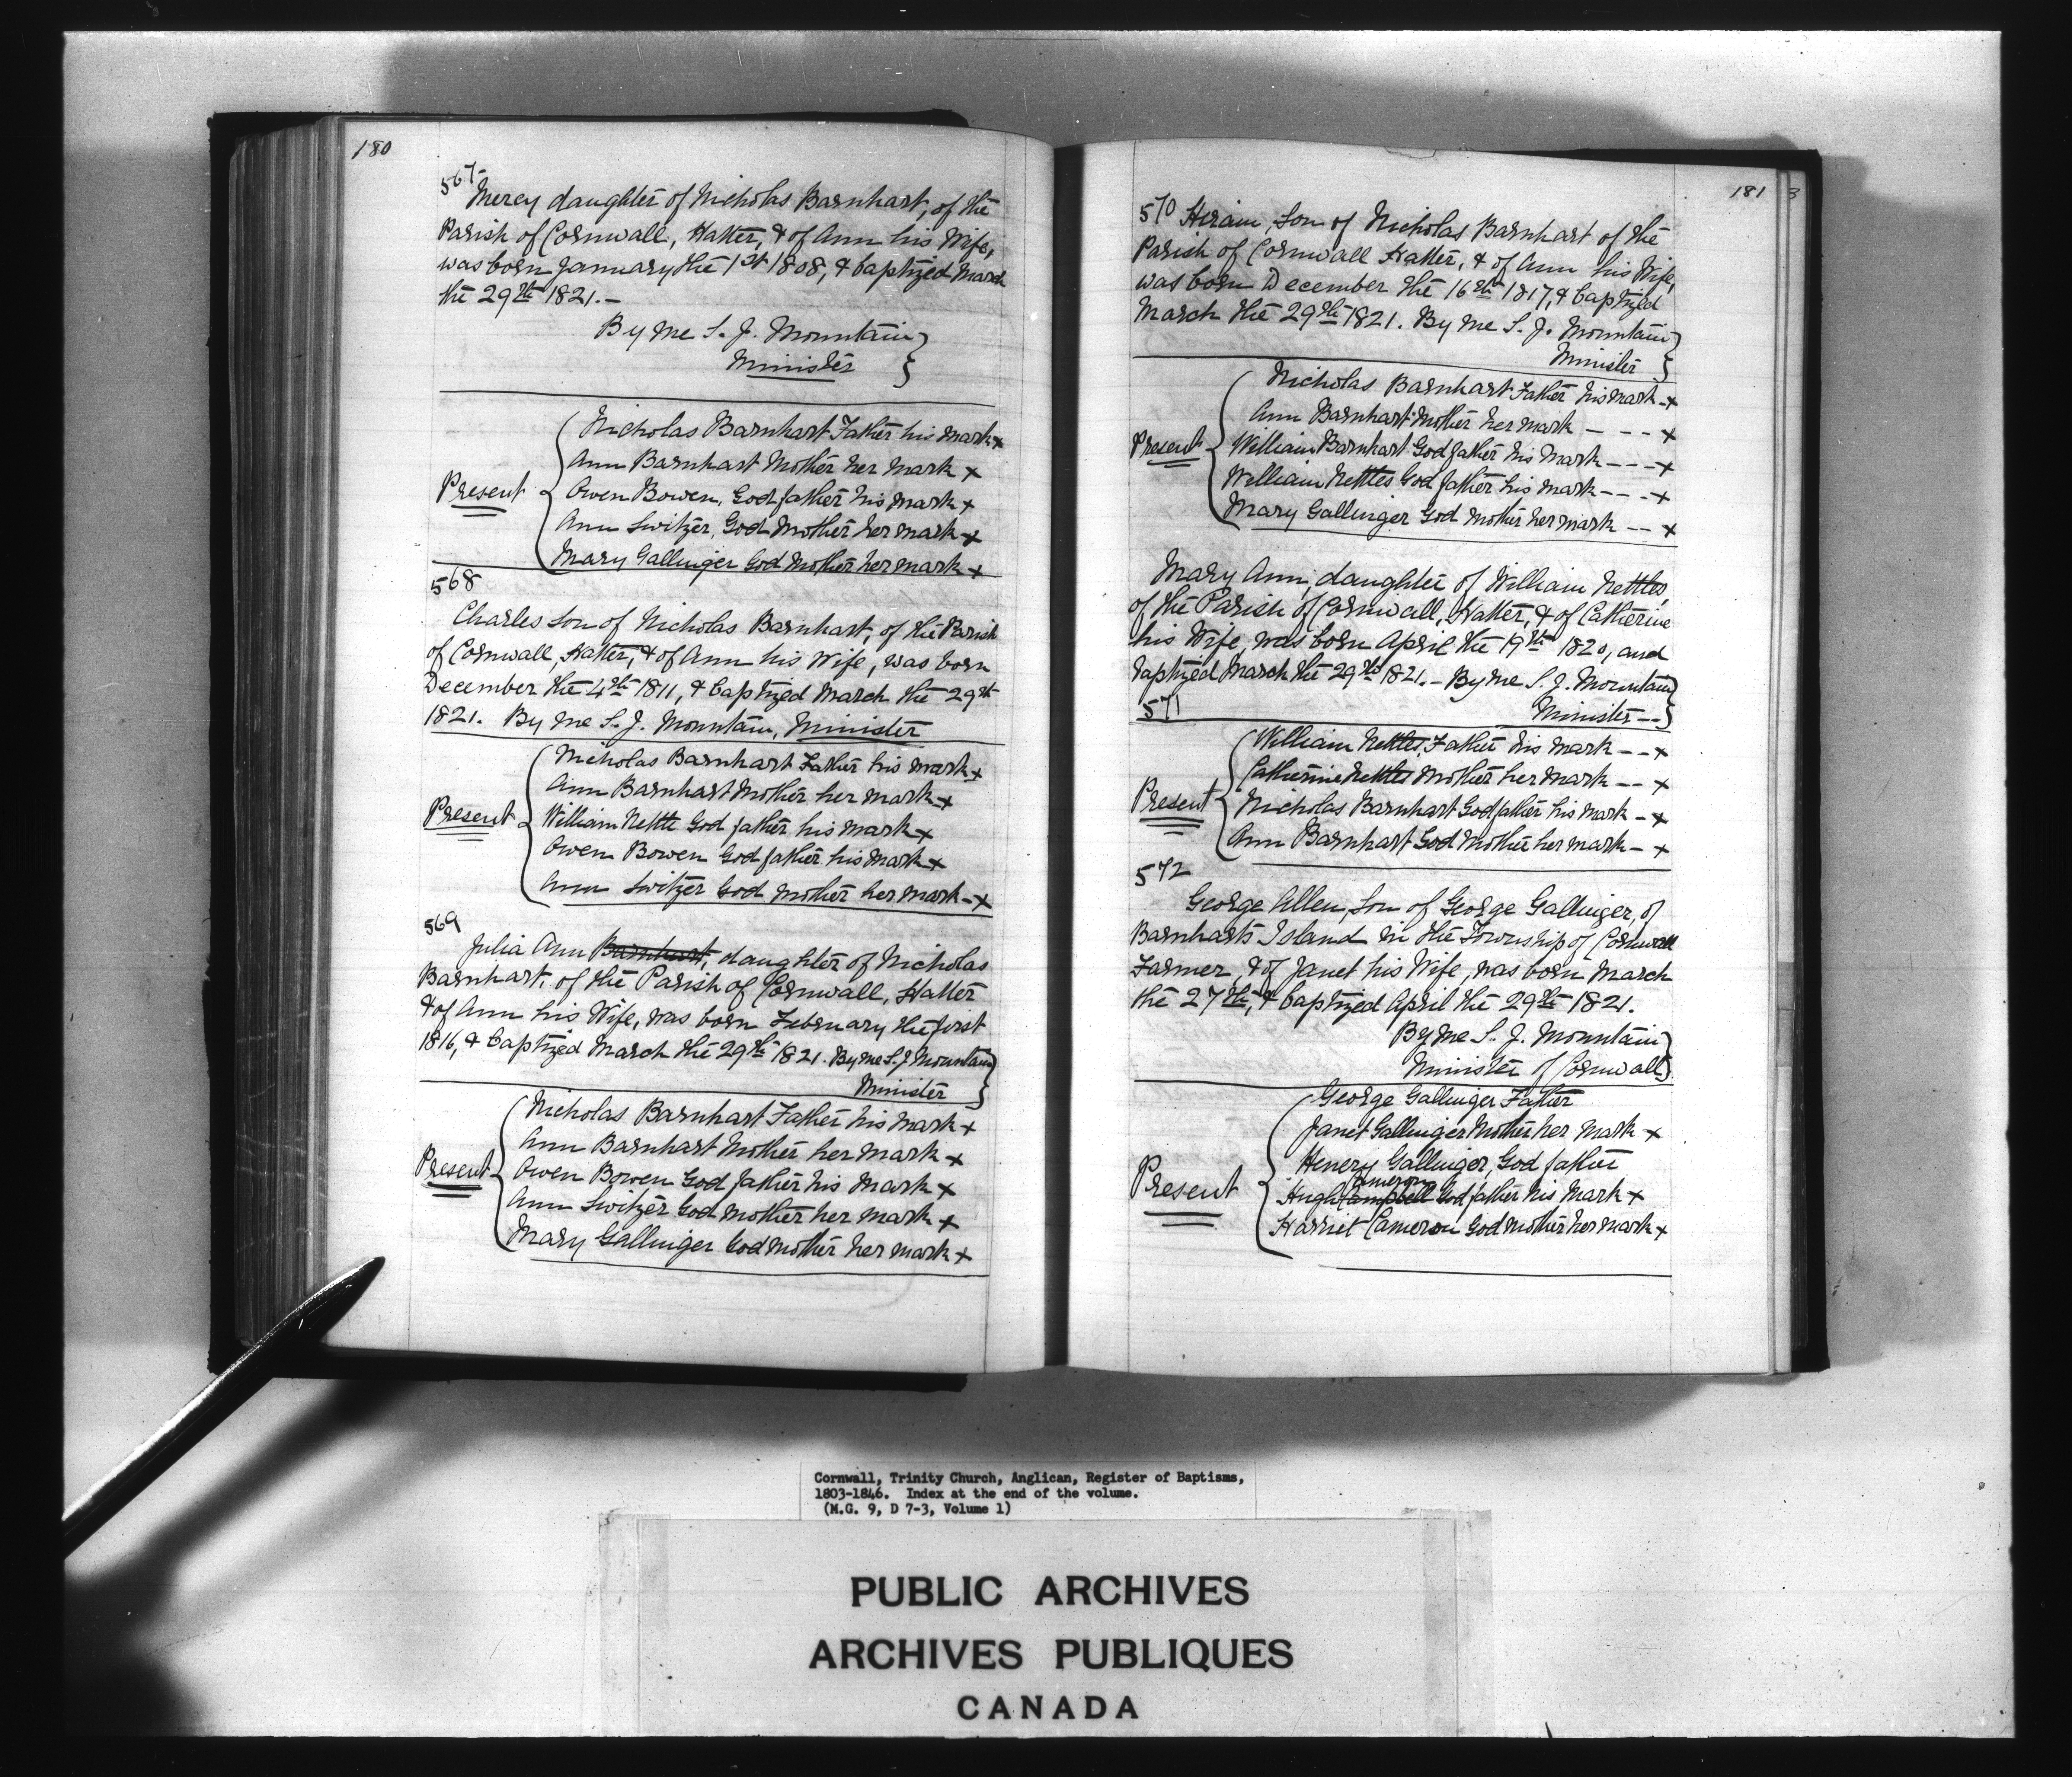 180
567
Mercy daughter of Nicholas Barnhart, of the
Parish of Cornwall, Hatter, & of Ann his Wife,
was born January the 1st 1808, & baptized March
the 29th 1821.-
By me S. J. Mountain
Minister
Present
Nicholas Barnhart Father his mark x
Ann Barnhart Mother her mark x
Owen Bowen, God father his mark x
Ann Switzer, God Mother her mark x
Mary Gallinger God Mother her mark x
568
Charles Son of Nicholas Barnhart, of the Parish
of Cornwall, Hatter, & of Ann his Wife, was born
December the 4th 1811, & baptized March the 29th
1821. By me S. J. Mountain, Minister
Present
Nicholas Barnhart Father his mark x
Ann Barnhart Mother her mark x
William Nettle God father his mark x
Owen Bowen God father his mark x
Ann Switzer God mother her mark - x
569
Julia Ann Barnhart, daughter of Nicholas
Barnhart, of the Parish of Cornwall, Hatter
& of Ann his Wife, was born February the first
1816, & baptized March the 29th 1821. By me S. J Mountain
Minister
Present
Nicholas Barnhart Father his mark x
Ann Barnhart Mother her mark x
Owen Bowen God father his mark x
Ann Switzer God mother her mark x
Mary Gallinger God mother her mark x
181
3
570 Hiram, Son of Nicholas Barnhart of the
Parish of Cornwall Hatter, & of Ann his Wife,
was born December the 16th 1817, & baptized
March the 29th 1821. By me S. J. Mountain
Minister
Present
Nicholas Barnhart Father his mark - x
Ann Barnhart Mother her mark - - - x
William Barnhart God father his mark - - - x
William Nettles God father his mark - - - x
Mary Gallinger God Mother her mark - - x
Mary Ann, daughter of William Nettles,
of the Parish of Cornwall, Hatter, & of Catherine
his Wife, was born April the 19th 1820, and
baptized March the 29th 1821. - By me S. J. Mountain
571 Minister --
Present
William Nettles, Father his mark - - x
Catherine Nettles Mother her mark - - x
Nicholas Barnhart God father his mark - x
Ann Barnhart God Mother her mark - x
572
George Allen, Son of George Gallinger, of
Barnharts Island in the Township of Cornwall
Farmer, & of Janet his Wife, was born March
the 27th, & baptized April the 29th 1821.
By me S. J. Mountain
Minister of Cornwall
Present
George Gallinger Father
Janet Gallinger Mother her mark x
Henery Gallinger, God father
Cameron
Hugh Campbell God father his mark x
Harriet Cameron God mother her mark x
Cornwall, Trinity Church, Anglican, Register of Baptisms,
1803-1846. Index at the end of the volume.
(M.G. 9, D 7-3, Volume 1)
PUBLIC ARCHIVES
ARCHIVES PUBLIQUES
CANADA